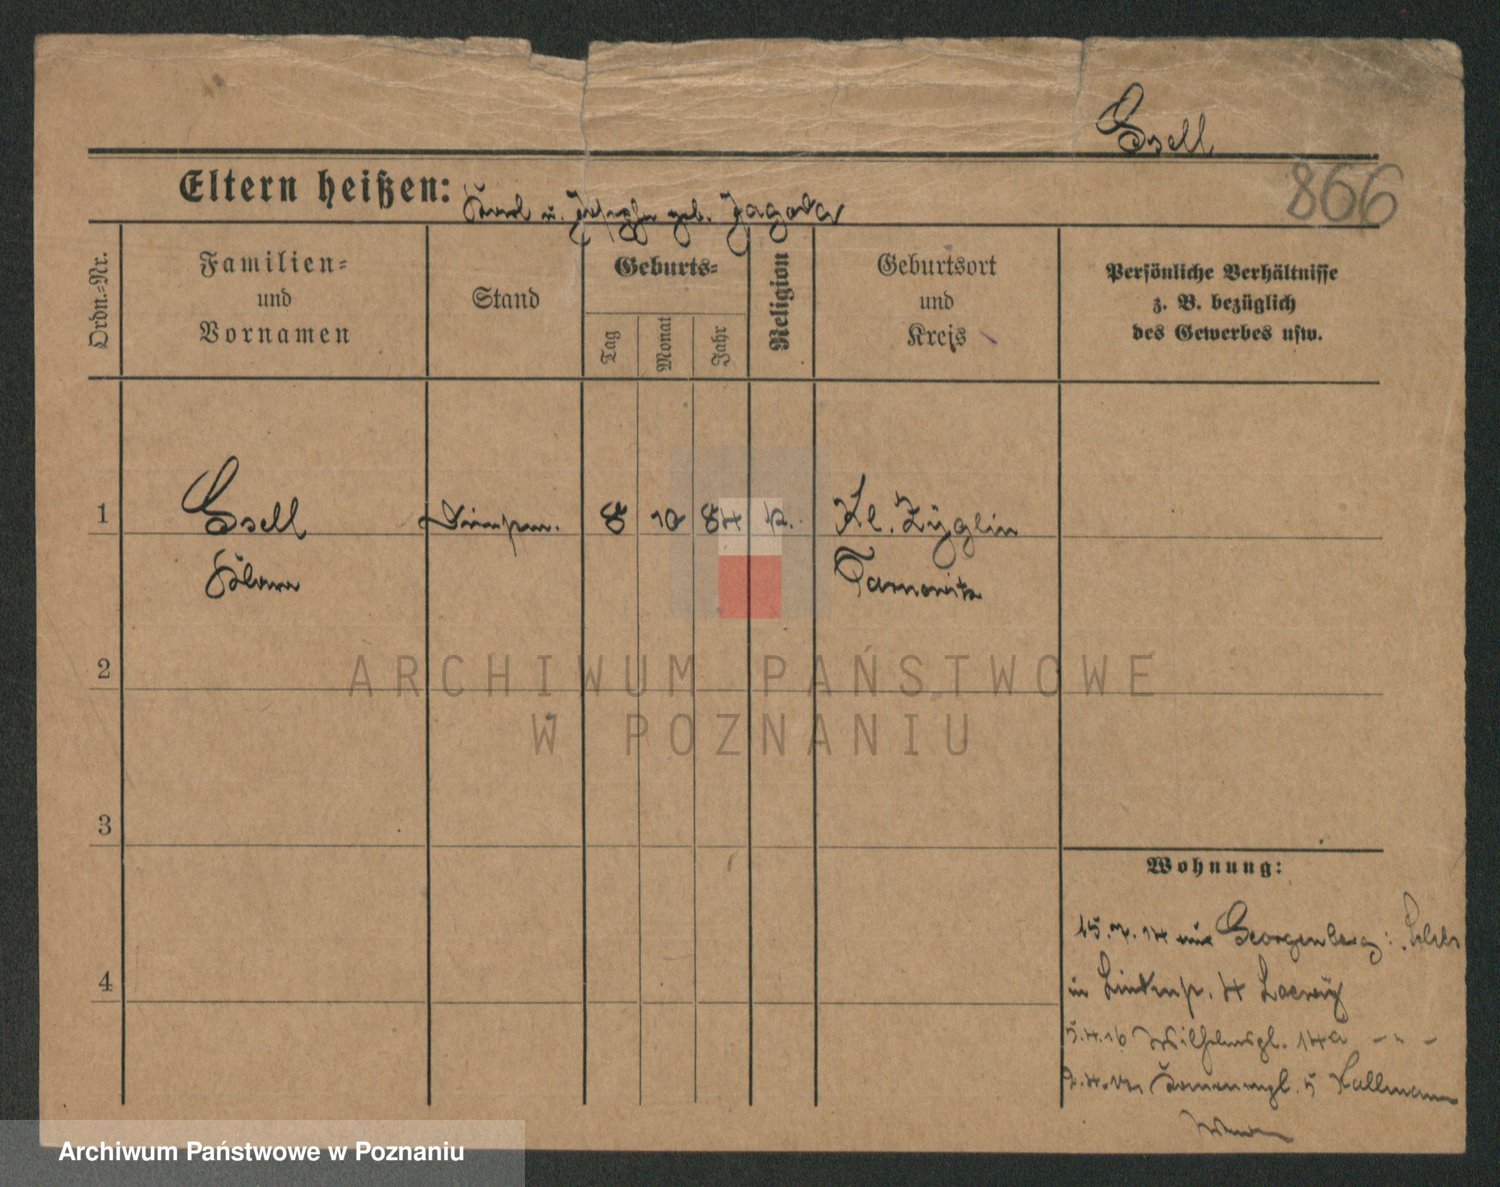 Gsell
866
Eltern heißen: Karl u. Josepha geb. Jagoda
Ordn.-Nr.
Familien-
und
Vornamen
Stand
Geburts-
Tag
Monat
Jahr
Religion
Geburtsort
und
Kreis
Persönliche Verhältnisse
z. B. bezüglich
des Gewerbes usw.
1
Gsell
8 10 84 k.
Kl. Zyglin
Tarnowitz
2
3
4
Wohnung:
15.7.14 aus Georgenberg:
in Lindenstr. 4
5.4.16 Wilhelmspl. 14a - " -
5 Kallmann
ARCHIWUM PAŃSTWOWE
W POZNANIU
Archiwum Państwowe w Poznaniu